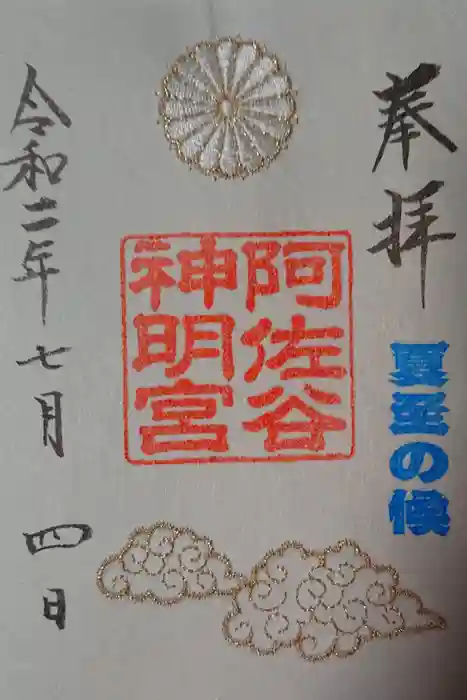 奉拝
夏至の候
阿佐谷
神明宮
令和二年七月四日